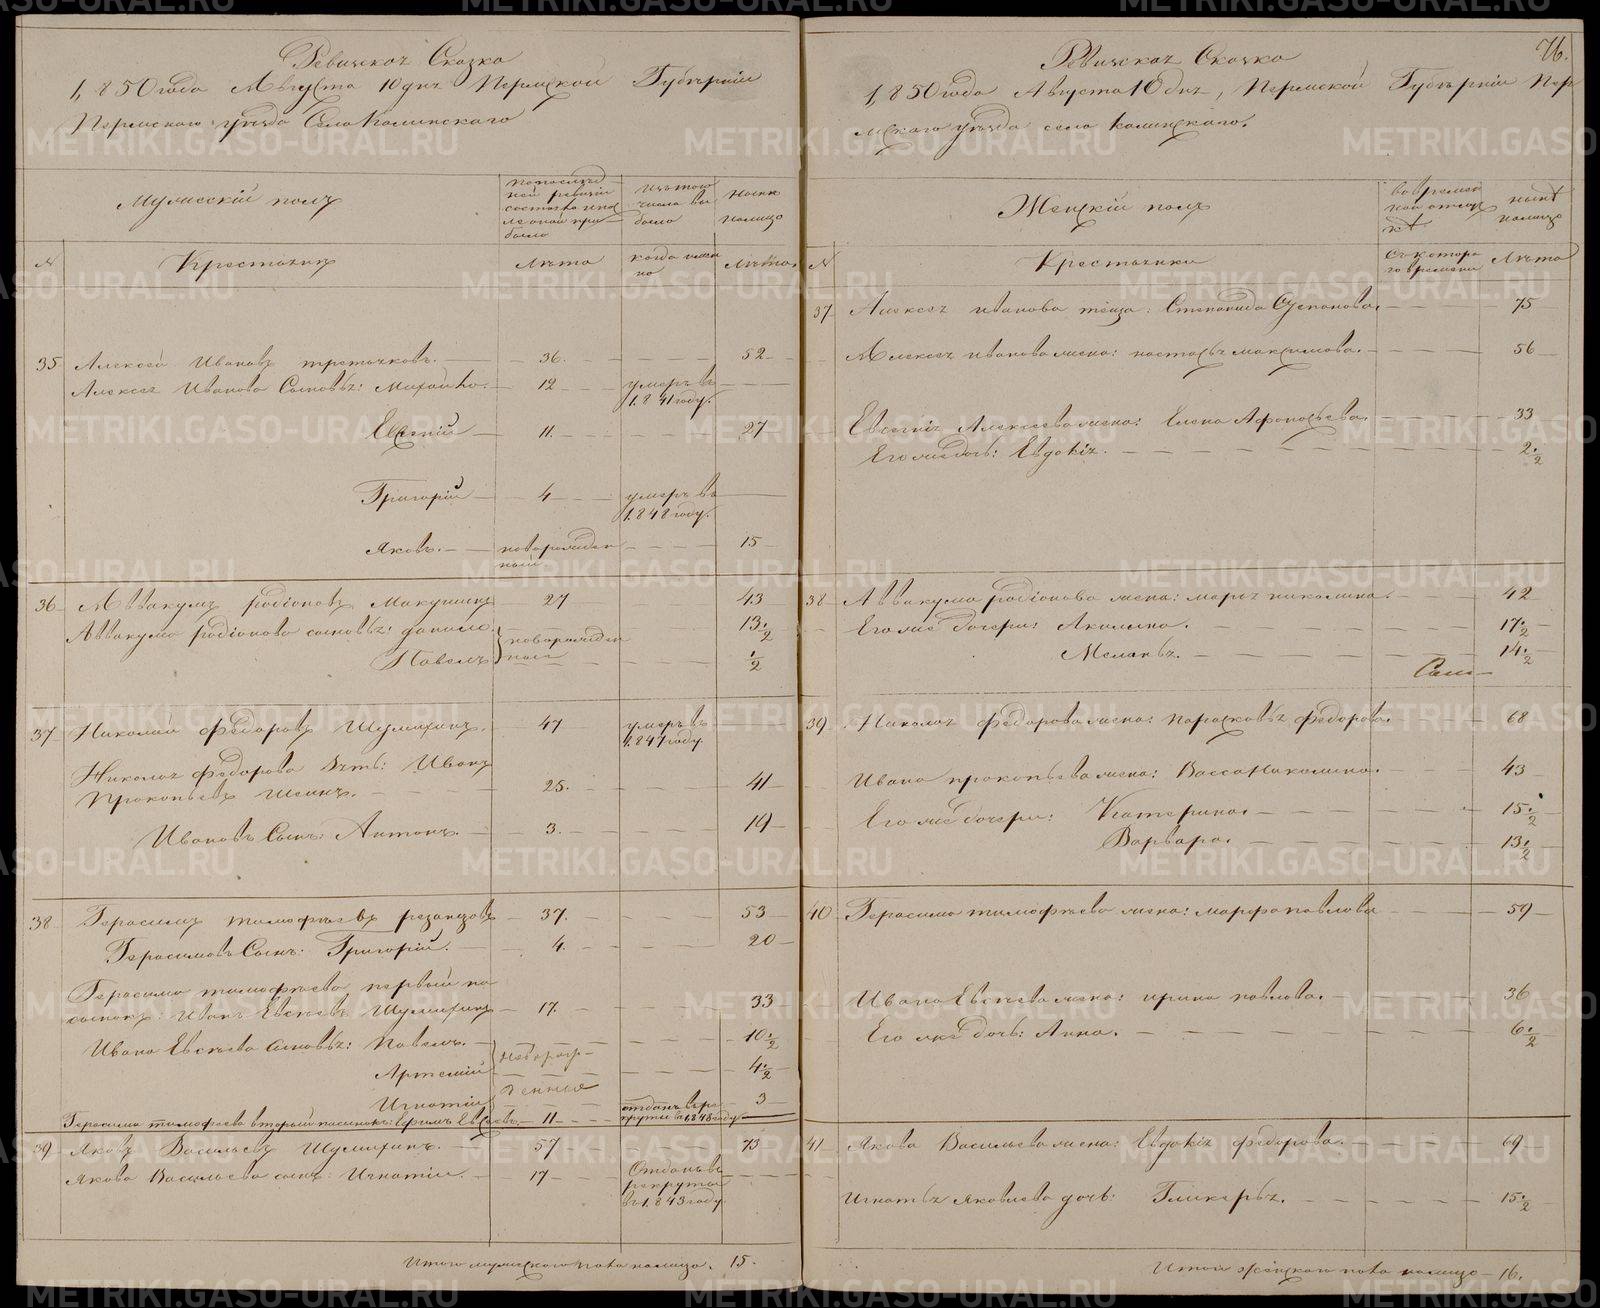 Ревижская Сказка
1,850 года Августа 10 дня Пермской Губерніи
Пермскаго уезда Села Калинскаго
Мужескій полъ
По последней ревизіи состояло и после оной прибыло
Изъ того числа выбыло
Ныне налицо
№
Крестьянинъ
Лета
когда именно
Лета
35
Алексей Ивановъ третьяковъ.
36.
52
Алексея Иванова Сыновья: Михайло.
12
умеръ въ 1,841 году.
Евгений
11.
27
Григорій
4
умеръ въ 1,848 году.
Яковъ.
новорожденный
15
36
Аввакумъ родіоновъ Макушинъ
27
43
Аввакума родіонова сыновья: данило
новорожденные
13 1/2
Павелъ
1/2
37
Николай федоровъ Шумихинъ.
47
умеръ въ 1,847 году
Николая федорова зять: Иванъ
Прокопьевъ Шеинъ.
25.
41
Ивановъ Сынъ: Антонъ.
3.
19
38
Герасимъ тимофеевъ резанцовъ
37.
53
Герасимовъ Сынъ: Григорій.
4.
20
Герасима тимофеева первый па
сынокъ: Иванъ Евсеевъ Шумихинъ
17.
33
Ивана Евсеева сыновья: Павелъ.
новорожденныя
10 1/2
Артемій
4 1/2
Игнатій
3
Герасима тимофеева вторый пасынокъ: Ефимъ Евсеевъ
11
отданъ въ рекруты въ 1,848 году
39
Яковъ Васильевъ Шумихинъ.
57
73
Якова Васильева сынъ: Игнатій.
17
Отданъ въ рекруты въ 1,843 году
Итого мужескаго пола налицо. 15.
76.
Ревижская Сказка
1,850 года Августа 10 дня, Пермской Губерніи Пер
мскаго уезда села Калинскаго.
Женскій полъ
во временной отлучке
ныне налицо
№
Крестьянки
съ котораго времени
Лета
37
Алексея иванова теща: Степанида Степанова.
75
Алексея иванова жена: настасья максимова.
56
Евгения Алексеева жена: Елена Афонасьева.
33
Его же дочь: Евдокія.
2 1/2
38
Аввакума родіонова жена: марья николина.
42
Его же дочери: Акилина.
17 1/2
Меланья.
14 1/2
39
Николая федорова жена: парасковья федорова.
68
Ивана прокопьева жена: Васса Николина.
43
Его же дочери: Катерина.
15 1/2
Варвара.
13 1/2
40
Герасима тимофеева жена: марфа павлова
59
Ивана Евсеева жена: ирина павлова.
36
Его же дочь: Анна.
6 1/2
41
Якова Васильева жена: Евдокія федорова.
69
Игнатья яковлева дочь: Гликерья.
15 1/2
Итого женскаго пола налицо 16.
METRIKI.GASO-URAL.RU